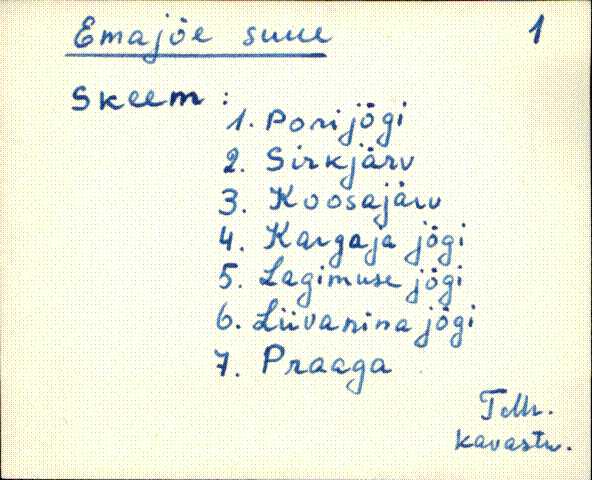 Emajõe suue 1
Skeem:
1. Porijõgi
2. Sirkjärv
3. Koosajärv
4. Kargaja jõgi
5. Lagimuse jõgi
6. Liivanina jõgi
7. Praaga
Kavastu.